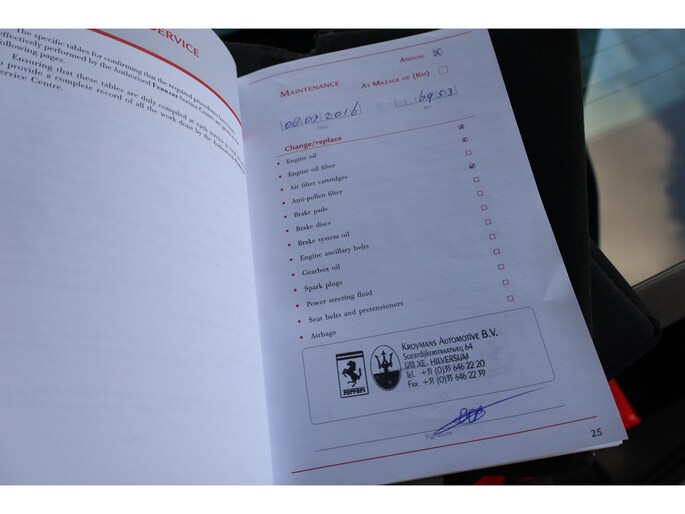 SERVICE
The specific tables for confirming that the required procedures have been
effectively performed by the Authorised FERRARI Service Centre are given on
following pages.
Ensuring that these tables are duly compiled at each service
provide a complete record of all the work done by the Authorised
Service Centre.
MAINTENANCE
ANNUAL
AT MILEAGE OF (KM)
08 07 2016
6953
Date
Km
Change/replace
• Engine oil
• Engine oil filter
• Air filter cartridges
• Anti-pollen filter
• Brake pads
• Brake discs
• Brake system oil
• Engine ancillary belts
• Gearbox oil
• Spark plugs
• Power steering fluid
• Seat belts and pretensioners
• Airbags
Ferrari
KROYMANS AUTOMOTIVE B.V.
SOESTDIJKERSTRAATWEG, 64
1213 XE, HILVERSUM
TEL. +31 (0)35 646 22 20
FAX. +31 (0)35 646 22 39
Signature
25